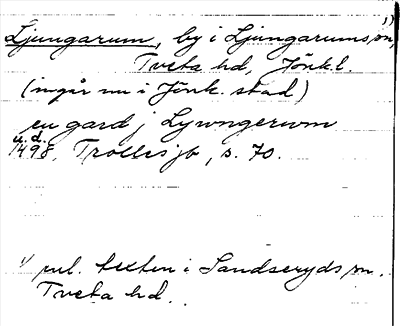 Ljungarum, by i Ljungarums sn, 1)
Tveta hd, Jönk.l.
(ingår nu i Jönk. stad)
en gard j Lywngerwm
u.d.
1498, Trolles jb, s. 70.
1) enl. texten i Sandseryds sn.
Tveta hd.